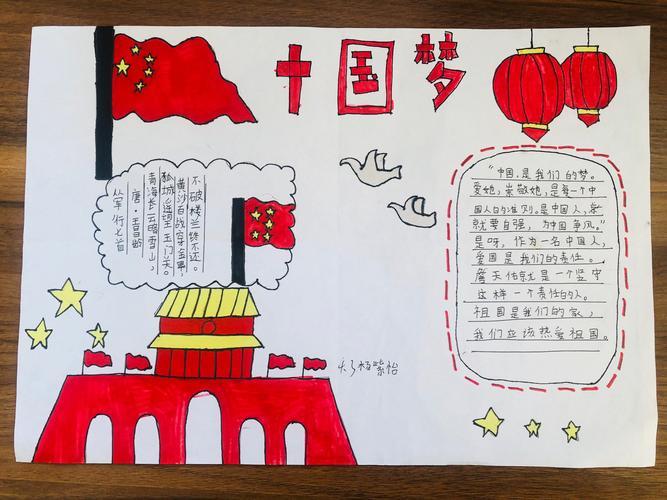 中国梦
从军行七首
唐·王昌龄
青海长云暗雪山,
孤城遥望玉门关。
黄沙百战穿金甲,
不破楼兰终不还。
"中国,是我们的梦。
爱她,崇敬她,是每一个中
国人的准则。是中国人,就
就要自强,为中国争风。"
是呀,作为一名中国人,
爱国是我们的责任。
詹天佑就是一个坚守
这样一个责任的人。
祖国是我们的家,
我们应该热爱祖国。
杨紫怡